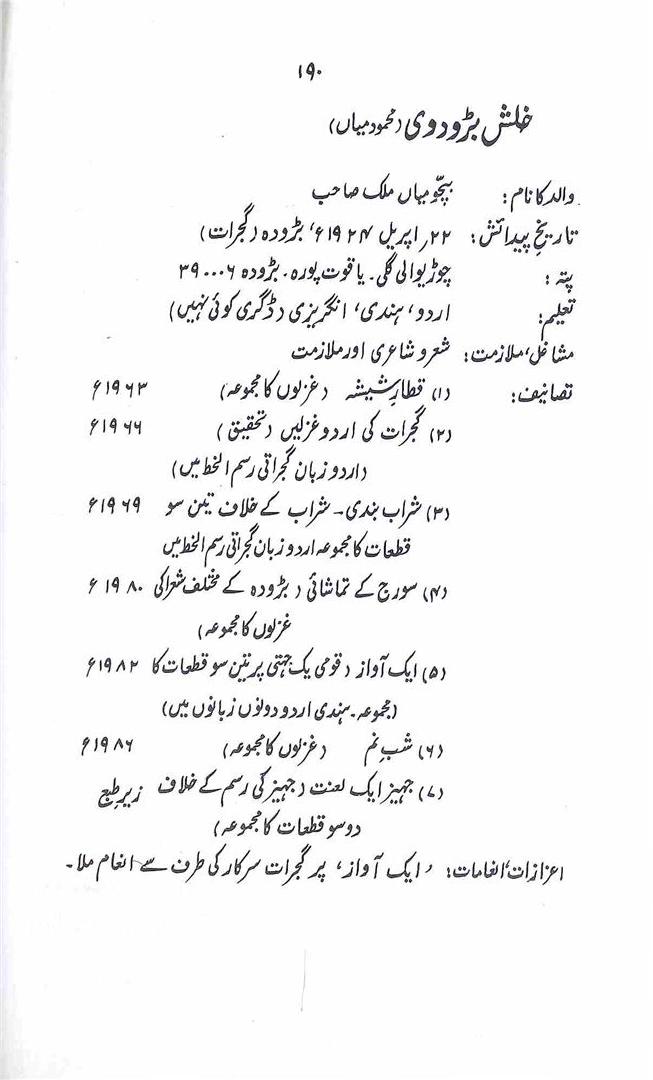 ۱۹۰
خلش بڑودوی (محمود میاں)
والد کا نام: بچّو میاں ملک صاحب
تاریخ پیدائش: ۲۲؍ اپریل ۱۹۲۴ء، بڑودہ (گجرات)
پتہ: چوڑیوالی گلی۔ یاقوت پورہ۔ بڑودہ ۳۹۰۰۰۶
تعلیم: اردو، ہندی، انگریزی (ڈگری کوئی نہیں)
مشاغل، ملازمت: شعر و شاعری اور ملازمت
تصانیف: (۱) قطارِ شیشہ (غزلوں کا مجموعہ) ۱۹۶۳ء
(۲) گجرات کی اردو غزلیں (تحقیق) ۱۹۶۶ء
(اردو زبان گجراتی رسم الخط میں)
(۳) شراب بندی۔ شراب کے خلاف تین سو ۱۹۶۹ء
قطعات کا مجموعہ اردو زبان گجراتی رسم الخط میں
(۴) سورج کے تماشائی (بڑودہ کے مختلف شعرا کی ۱۹۸۰ء
غزلوں کا مجموعہ)
(۵) ایک آواز (قومی یک جہتی پر تین سو قطعات کا ۱۹۸۲ء
(مجموعہ۔ ہندی اردو دونوں زبانوں میں)
(۶) شب نم (غزلوں کا مجموعہ) ۱۹۸۶ء
(۷) جہیز ایک لعنت (جہیز کی رسم کے خلاف زیر طبع
دو سو قطعات کا مجموعہ)
اعزازات، انعامات: ’ایک آواز‘ پر گجرات سرکار کی طرف سے انعام ملا۔